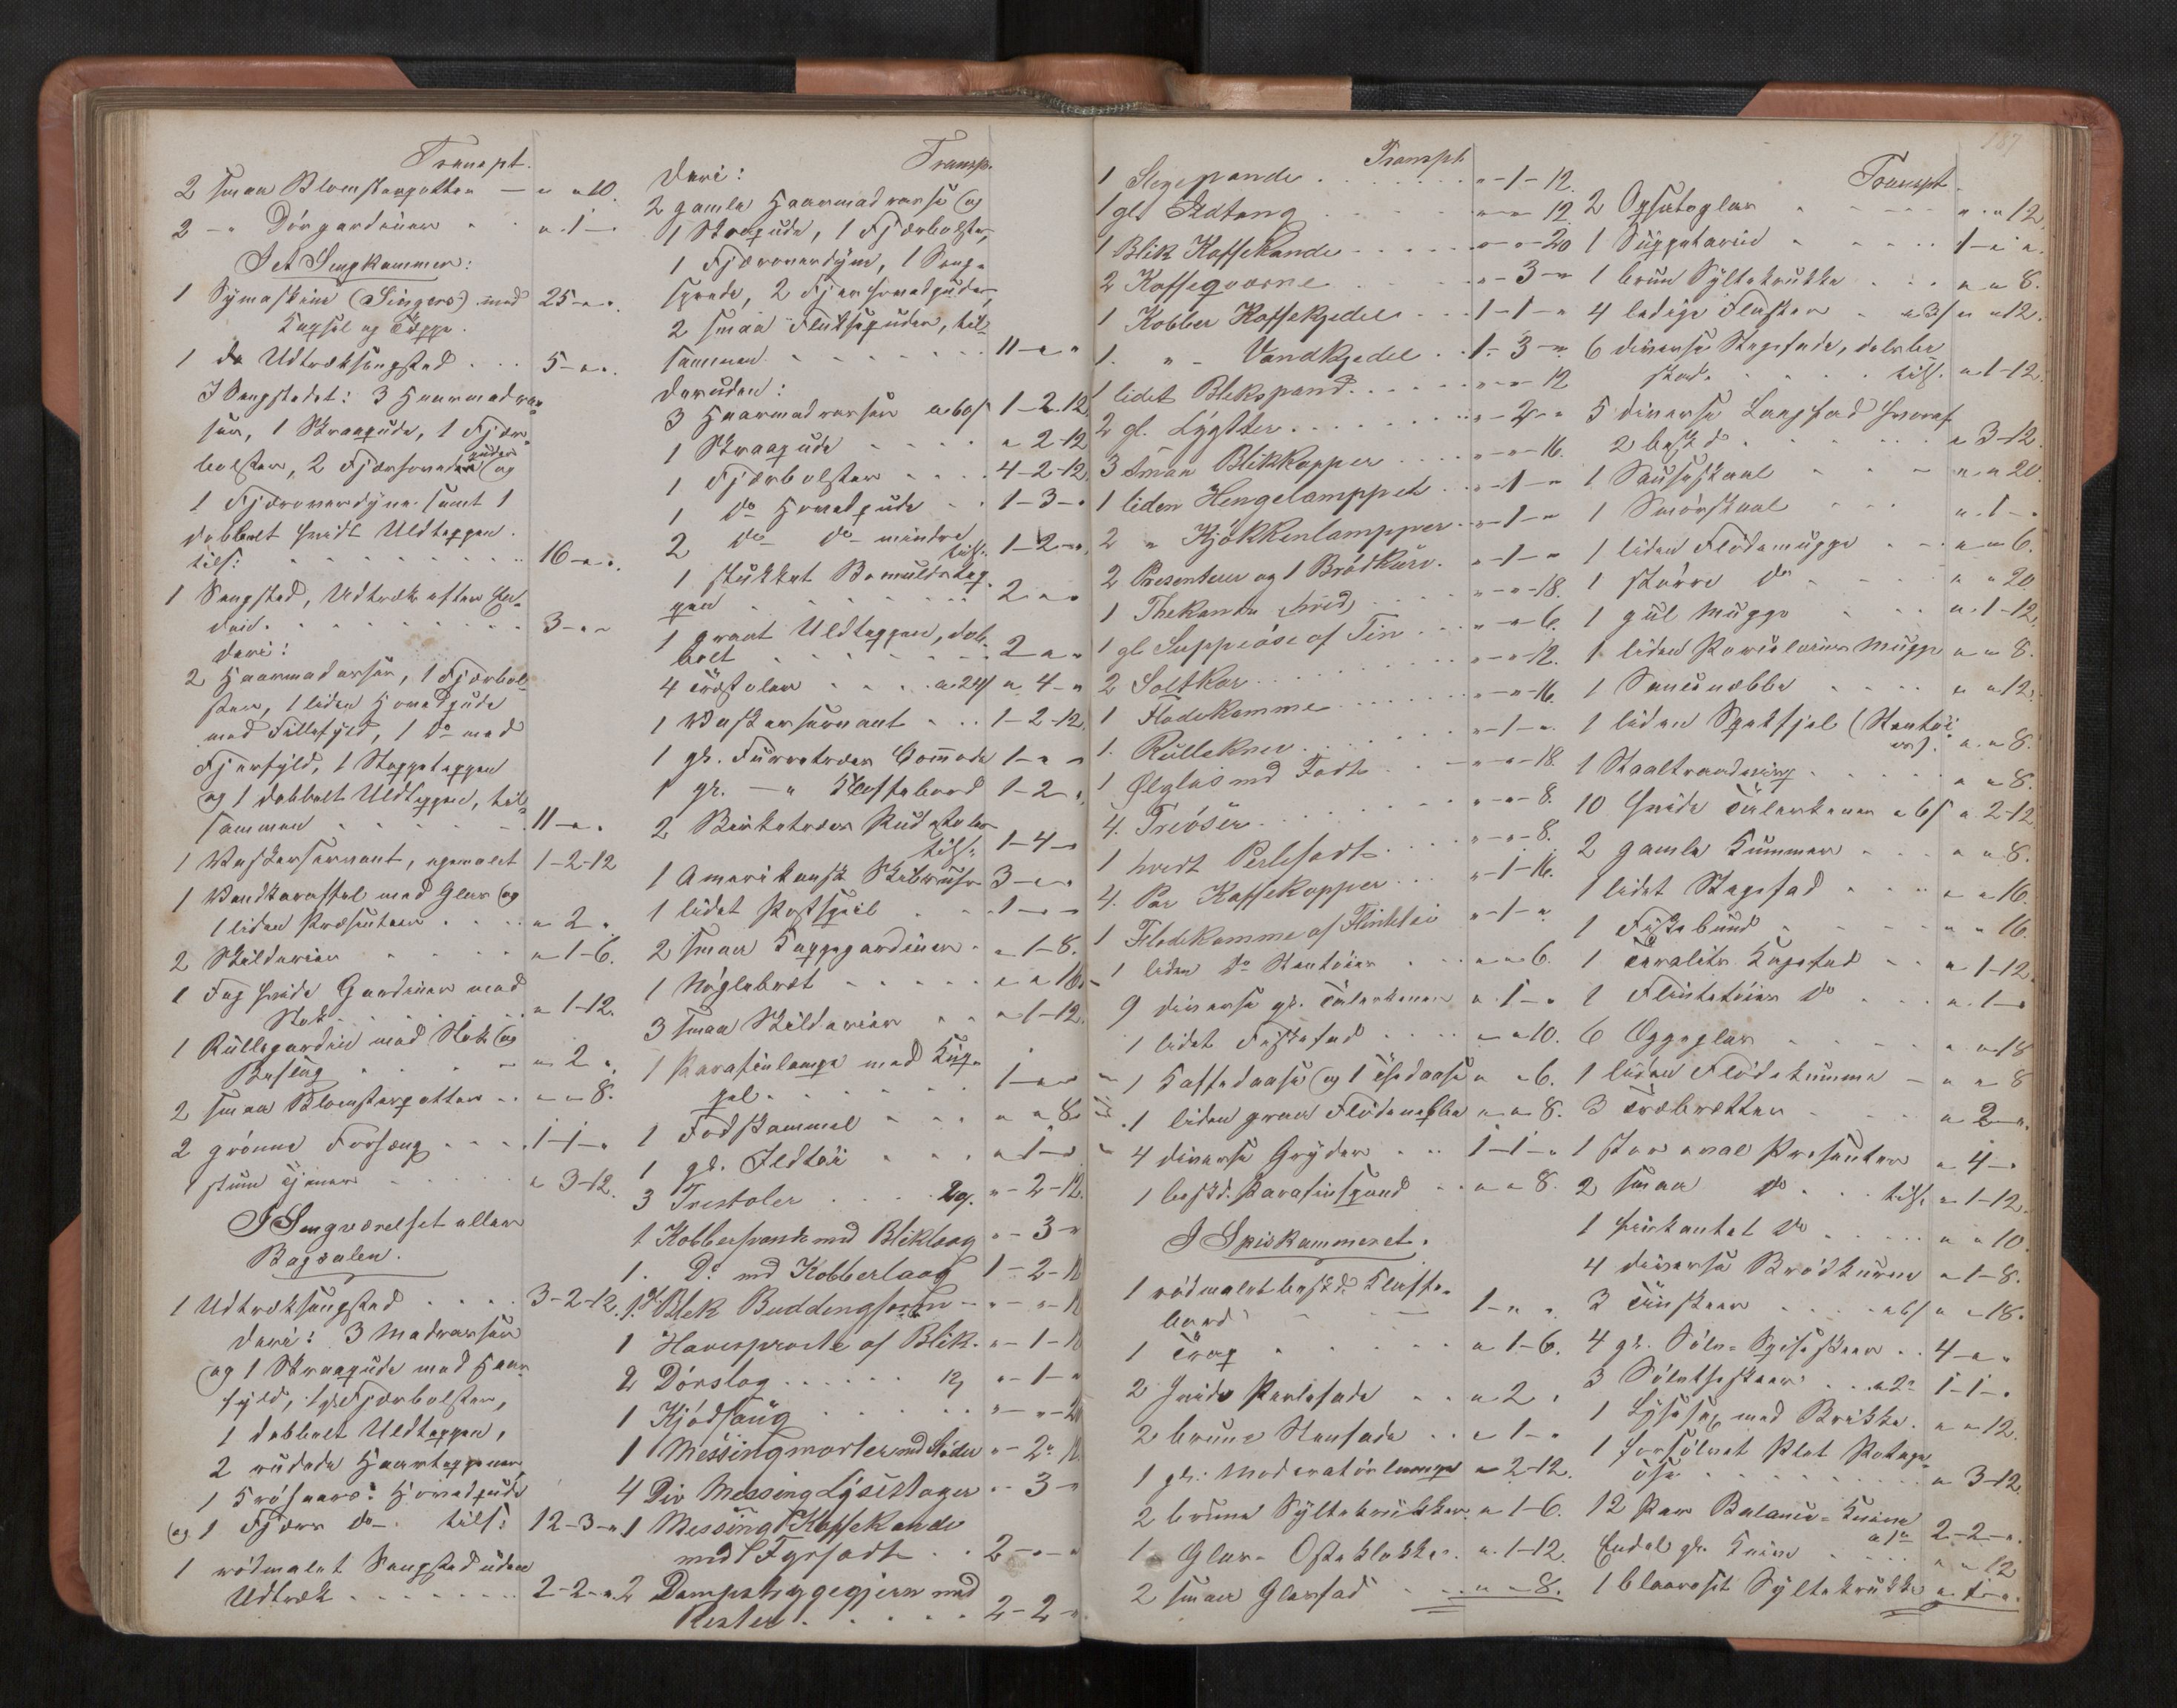 Transpt.
2 smaa Blomsterpotter — " " 10.
2 — " Dörgardiner " " 1 — "
I et Sengkammer:
1 Symaskine (Singers) med 25 - " "
Kapsel og Tæppe.
1 do Udtræksengsted 5 - " "
I Sengstedet: 3 Haarmadras-
ser, 1 Skraapude, 1 Fjær-
bolster, 2 Fjærhovedpuder og
1 Fjæroverdyne samt 1
dobbelt hvidt Uldteppen.
tils: 16 - " "
1 Sengsted, Udtræk efter
3 - " "
deri:
2 Haarmadrasser, 1 Fjærbol-
ster, 1 liden Hovedpude
med Fillefyld, 1 Do med
Fjærfyld, 1 Stoppeteppen
og 1 dobbelt Uldteppen, til-
sammen 11 - " "
1 Vaskeservant, umalet 1-2-12
1 Vandkaraffel med Glas og
1 liden Præsenteer " 2 "
2 Skilderier " 1-6.
1 Fag hvide Gardiner med
Stok " 1-12.
1 Rullegardin med Stok og
Beslag " 2 "
2 smaa Blomsterpotter " " 8.
2 grönne Forhæng 1-1-"
1 stum Tjener " 3-12.
I Sengværelset eller
Bagsalen.
1 Udtræksengsted 3-2-12.
deri: 3 Madrasser
og 1 Skraapude med Haar-
fyld, 1 gl Fjærbolster,
1 dobbelt Uldteppen,
2 rudede Haarteppener
1 Hovedpude
og 1 Fjær do tils: 12-3-"
1 rödmalet Sengsted uden
Udtræk 2-2-"
Transp.
deri:
2 gamle Haarmadrasse og
1 Skraapude, 1 Fjærbolster,
1 Fjæroverdyne, 1 Senge-
sprede, 2 Fjærhovedpuder,
2 smaa Fluksepuder, til-
sammen 11 - " "
deruden:
3 Haarmadrasser a 60s 1-2-12
1 Skraapude " 2-12
1 Fjærbolster 4-2-12
1 do Hovedpude 1-3-"
2 do do mindre tils: 1-2-"
1 stukket Bomuldstep-
pen 2 " "
1 graat Uldteppen, dob-
belt 2 " "
4 Træstoler a 24s " 4 - "
1 Vaskeservant 1-2-12
1 gl. Furretræes Commode 1 - " "
1 gl. — " Klaffebord 1-2 "
2 Birketræes Rudestoler
tils: 1-4-"
1 Amerikansk Skibsuhr 3 - " "
1 lidet Postspeil 1 - " "
2 smaa Kappegardiner " 1-8.
1 Nöglebræt " " 16
3 smaa Skilderier " 1-12.
1 Parafinlampe med Kup-
pel 1 - " "
1 Fodskammel " " 8
1 gl. Ildtöi " 1 - "
3 Trestoler 20. " - 2-12.
1 Kobberpande med Bliklaag " - 3 - "
1. Do md Kobberlaag 1-2-12
1 gl Blik Buddingform " - " - 12
1 Havesproite af Blik. " - 1 - 12
2 Dörslag 12s " - 1 - "
1 Kjödsaug " - " - 20
1 Messingmorter med Støder " - 2 - 12
4 Div Messing Lysestager " - 3 - "
1 Messing Kaffekande
med Fyrfadt 2 - " - "
2 Dampstrygegjern med
Rister 2-2-"
187
Transpt
1 Stegepande " - 1 - 12.
1 gl. Ildtang " - " - 12.
1 Blik Kaffekande " - " - 20
2 Kaffeqvarne " - 3 - "
1 Kobber Kaffekjedel 1-1-"
1. " - Vandkjedel 1-3-"
1 lidet Blikspand " - " - 12
2 gl. Lygter " - 2 - "
3 smaa Blikkopper " - " - 16.
1 liden Hengelamppe " - 1 - "
2 " Kjökkenlampper " - 1 - "
2 Presenteer og 1 Brödkurv. " - 1 - "
1 Thekande hvid " - " - 18.
1 gl Suppeöse af Tin " - " - 6.
2 Saltkar " - " - 12.
1 Flødekomme " - " - 16.
1. Rullekner " - 1 - "
1 Ølglas md Fodt " - " - 18
4. Treöser " - " - 8.
1 hvidt Perlefadt " - " - 8.
4. Par Kaffekopper " - 1 - 16.
1 Flødekomme af Flinttöi " - 1 - "
1 liden Do Stentöier " " 6.
9 diverse gl. Tallerkener " 1 - "
1 lidet Fiskefad " " 10.
1 Kaffedaase og 1 Thedaase " " 6.
1 liden graa Flödenebbe " " 8.
4 diverse Gryder 1-1-"
1 beskd. Parafinspand " " 8.
I Spiskammeret.
1 rödmalet beskd Klaffe-
bord 1 - " "
1 Trap " 1-6.
2 hvide Perlefade " 2 "
2 brune Stenfade " 1 - "
1 gl. Moderatörlampe " 2-12.
2 brune Syltekrukker " 1-6.
1 Glas-Osteklokke " 1-12.
2 smaa Glasfad " " 8.
Transpt
2 Opsatsglas " " 12
1 Suppeterin 1 - " "
1 brun Syltekrukke " " 8.
4 ledige Flasker a 3s " " 12.
6 diverse Stegefade, delvis
skad. tils. " 1-12.
5 diverse Langfad hvoraf
2 beskd " 3-12.
1 Sauseskaal " " 20.
1 Smörskaal " 1 - "
1 liden Flödemugge " " 6.
1 större do " " 20
1 gul Mugge " 1-12.
1 liden Porcelains Mugge " " 8.
1 Sausenebbe " " 12.
1 liden Spekfjel (Stentöi-
er). " " 8.
1 Staaltraadsring " " 8.
10 hvide Tallerkener a 6s " 2-12
2 gamle Kummer " " 8.
1 lidet Stegefad " " 16.
1 Fiskebund " " 16.
1 Kagefad " 1-12.
1 Flintetöier do " 1 - "
6 Eggeglas " " 18
1 liden Flödekumme " " 8
3 Træbretter " 2 - "
1 stor oval Presenter " 4 - "
2 smaa do tils: " 1-12.
1 firkantet do " " 10
4 diverse Brödkurve " 1-8.
3 Tinskeer a 6s " " 18.
4 gl. Sölv-Spiseskeer 4 - " "
3 Sölvtheskeer 1-1-"
1 Lysesax med Brikke. " " 12.
1 forsölvet Plet Potage-
öse " 3-12.
12 Par Balance-Knive 2-2-"
Endel gl. Knive " " 12
1 blaaroset Syltekrukke " 1 - "